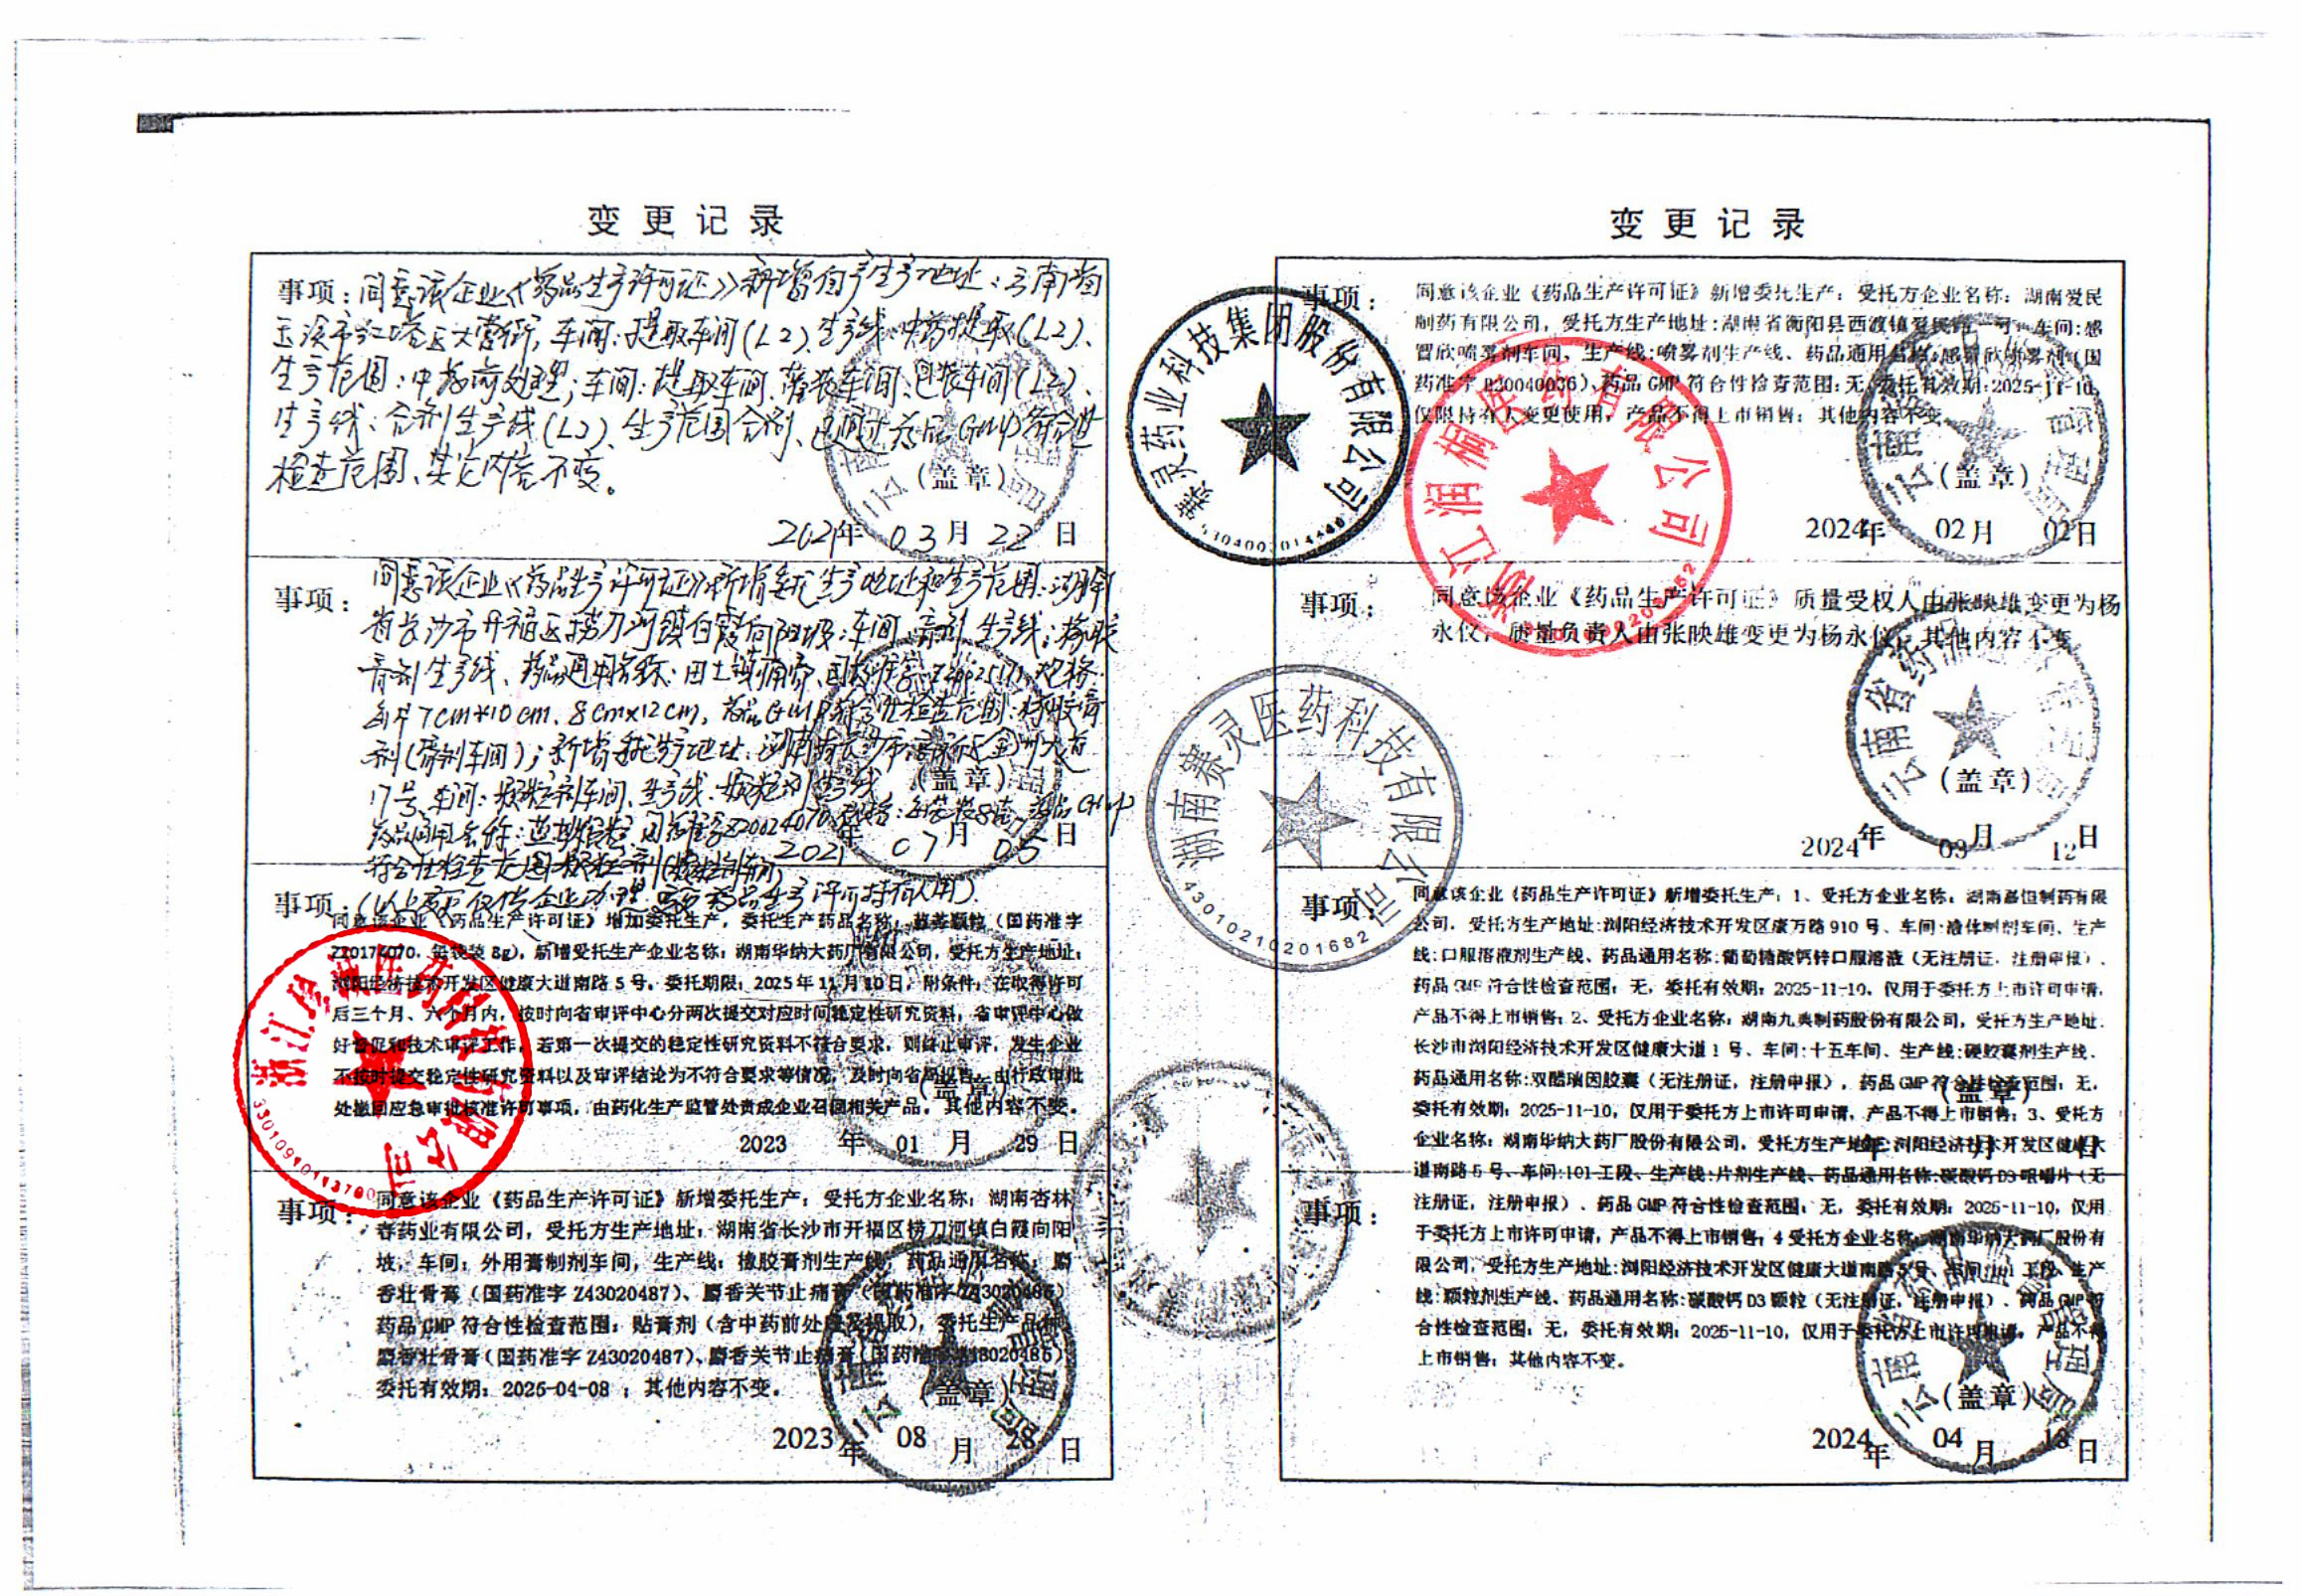 变更记录
事项：同意该企业《药品生产许可证》新增自产生产地址：云南省
玉溪市红塔区大营街，车间：提取车间(L2)、生产线：中药提取(L2)、
生产范围：中药前处理；车间：提取车间、灌装车间、包装车间(L2)、
生产线：合剂生产线(L2)、生产范围合剂、已通过药品GMP符合性
检查范围、其它内容不变。
(盖章)
2021年 03月 22日
事项：
同意该企业《药品生产许可证》新增委托生产地址和生产范围：湖南
省长沙市开福区捞刀河镇白霞向阳坡；车间：膏剂 生产线：橡胶
膏剂生产线、药品通用名称：
每片7cm×10cm、8cm×12cm，药品GMP符合性检查范围：橡胶膏
剂
17号、车间：颗粒剂车间、生产线：颗粒剂生产线
(盖章)
2021年 07月 05日
符合性检查范围：颗粒剂
事项：
同意该企业《药品生产许可证》增加委托生产，委托生产药品名称：颗粒（国药准字
每袋装 8g），新增受托生产企业名称：湖南华纳大药厂有限公司，受托方生产地址：
浏阳经济技术开发区健康大道南路 5 号，委托期限：2025 年 11 月 10 日，附条件：在取得许可
后三个月、六个月内，按时向省审评中心分两次提交对应时间稳定性研究资料，省审评中心做
好督促和技术审评工作，若第一次提交的稳定性研究资料不符合要求，则终止审评，发生企业
不按时提交稳定性研究资料以及审评结论为不符合要求等情况，及时向省局报告，由行政审批
处撤回应急审批核准许可事项，由药化生产监管处责成企业召回相关产品，其他内容不变。
(盖章)
2023 年 01 月 29 日
事项：
同意该企业《药品生产许可证》新增委托生产：受托方企业名称：湖南杏林
春药业有限公司，受托方生产地址：湖南省长沙市开福区捞刀河镇白霞向阳
坡，车间：外用膏制剂车间，生产线：橡胶膏剂生产线，药品通用名称：麝
香壮骨膏（国药准字 Z43020487）、麝香关节止痛膏（国药准字 Z43020486）
药品 GMP 符合性检查范围：贴膏剂（含中药前处理及提取），委托生产品种：
麝香壮骨膏（国药准字 Z43020487）、麝香关节止痛膏（国药准字 Z43020486）
委托有效期：2025-04-08 ；其他内容不变。
(盖章)
2023年 08月 28日
紫灵药业科技集团股份有限公司
浙江润楠医药有限公司
湖南赛灵医药科技有限公司
43010210201682
变更记录
事项：
同意该企业《药品生产许可证》新增委托生产：受托方企业名称：湖南爱民
制药有限公司，受托方生产地址：湖南省衡阳县西渡镇爱民路一号，车间：感
冒欣喷雾剂车间，生产线：喷雾剂生产线、药品通用名称：感冒欣喷雾剂（国
药准字 B20040036），药品 GMP 符合性检查范围：无，委托有效期：2025-11-10，
仅限持有人变更使用，产品不得上市销售；其他内容不变。
(盖章)
2024年 02月 02日
事项：
同意该企业《药品生产许可证》质量受权人由张映雄变更为杨
永仪，质量负责人由张映雄变更为杨永仪，其他内容不变
(盖章)
2024年 03月 12日
事项：
同意该企业《药品生产许可证》新增委托生产：1、受托方企业名称：湖南嘉恒制药有限
公司，受托方生产地址：浏阳经济技术开发区康万路 910 号、车间：液体制剂车间、生产
线：口服溶液剂生产线、药品通用名称：葡萄糖酸钙锌口服溶液（无注册证，注册申报）、
药品 GMP 符合性检查范围：无，委托有效期：2025-11-10，仅用于委托方上市许可申请，
产品不得上市销售；2、受托方企业名称：湖南九典制药股份有限公司，受托方生产地址：
长沙市浏阳经济技术开发区健康大道 1 号、车间：十五车间、生产线：硬胶囊剂生产线、
药品通用名称：双醋瑞因胶囊（无注册证，注册申报），药品 GMP 符合性检查范围：无，
(盖章)
委托有效期：2025-11-10，仅用于委托方上市许可申请，产品不得上市销售；3、受托方
企业名称：湖南华纳大药厂股份有限公司，受托方生产地址：浏阳经济技术开发区健康大
年 月 日
道南路 5 号、车间：101 工段、生产线：片剂生产线、药品通用名称：碳酸钙 D3 咀嚼片（无
事项：
注册证，注册申报）、药品 GMP 符合性检查范围：无，委托有效期：2025-11-10，仅用
于委托方上市许可申请，产品不得上市销售；4 受托方企业名称：湖南华纳大药厂股份有
限公司，受托方生产地址：浏阳经济技术开发区健康大道南路 5 号、车间：101 工段、生产
线：颗粒剂生产线、药品通用名称：碳酸钙 D3 颗粒（无注册证，注册申报）、药品 GMP 符
合性检查范围：无，委托有效期：2025-11-10，仅用于委托方上市许可申请，产品不得
上市销售；其他内容不变。
(盖章)
2024年 04月 18日